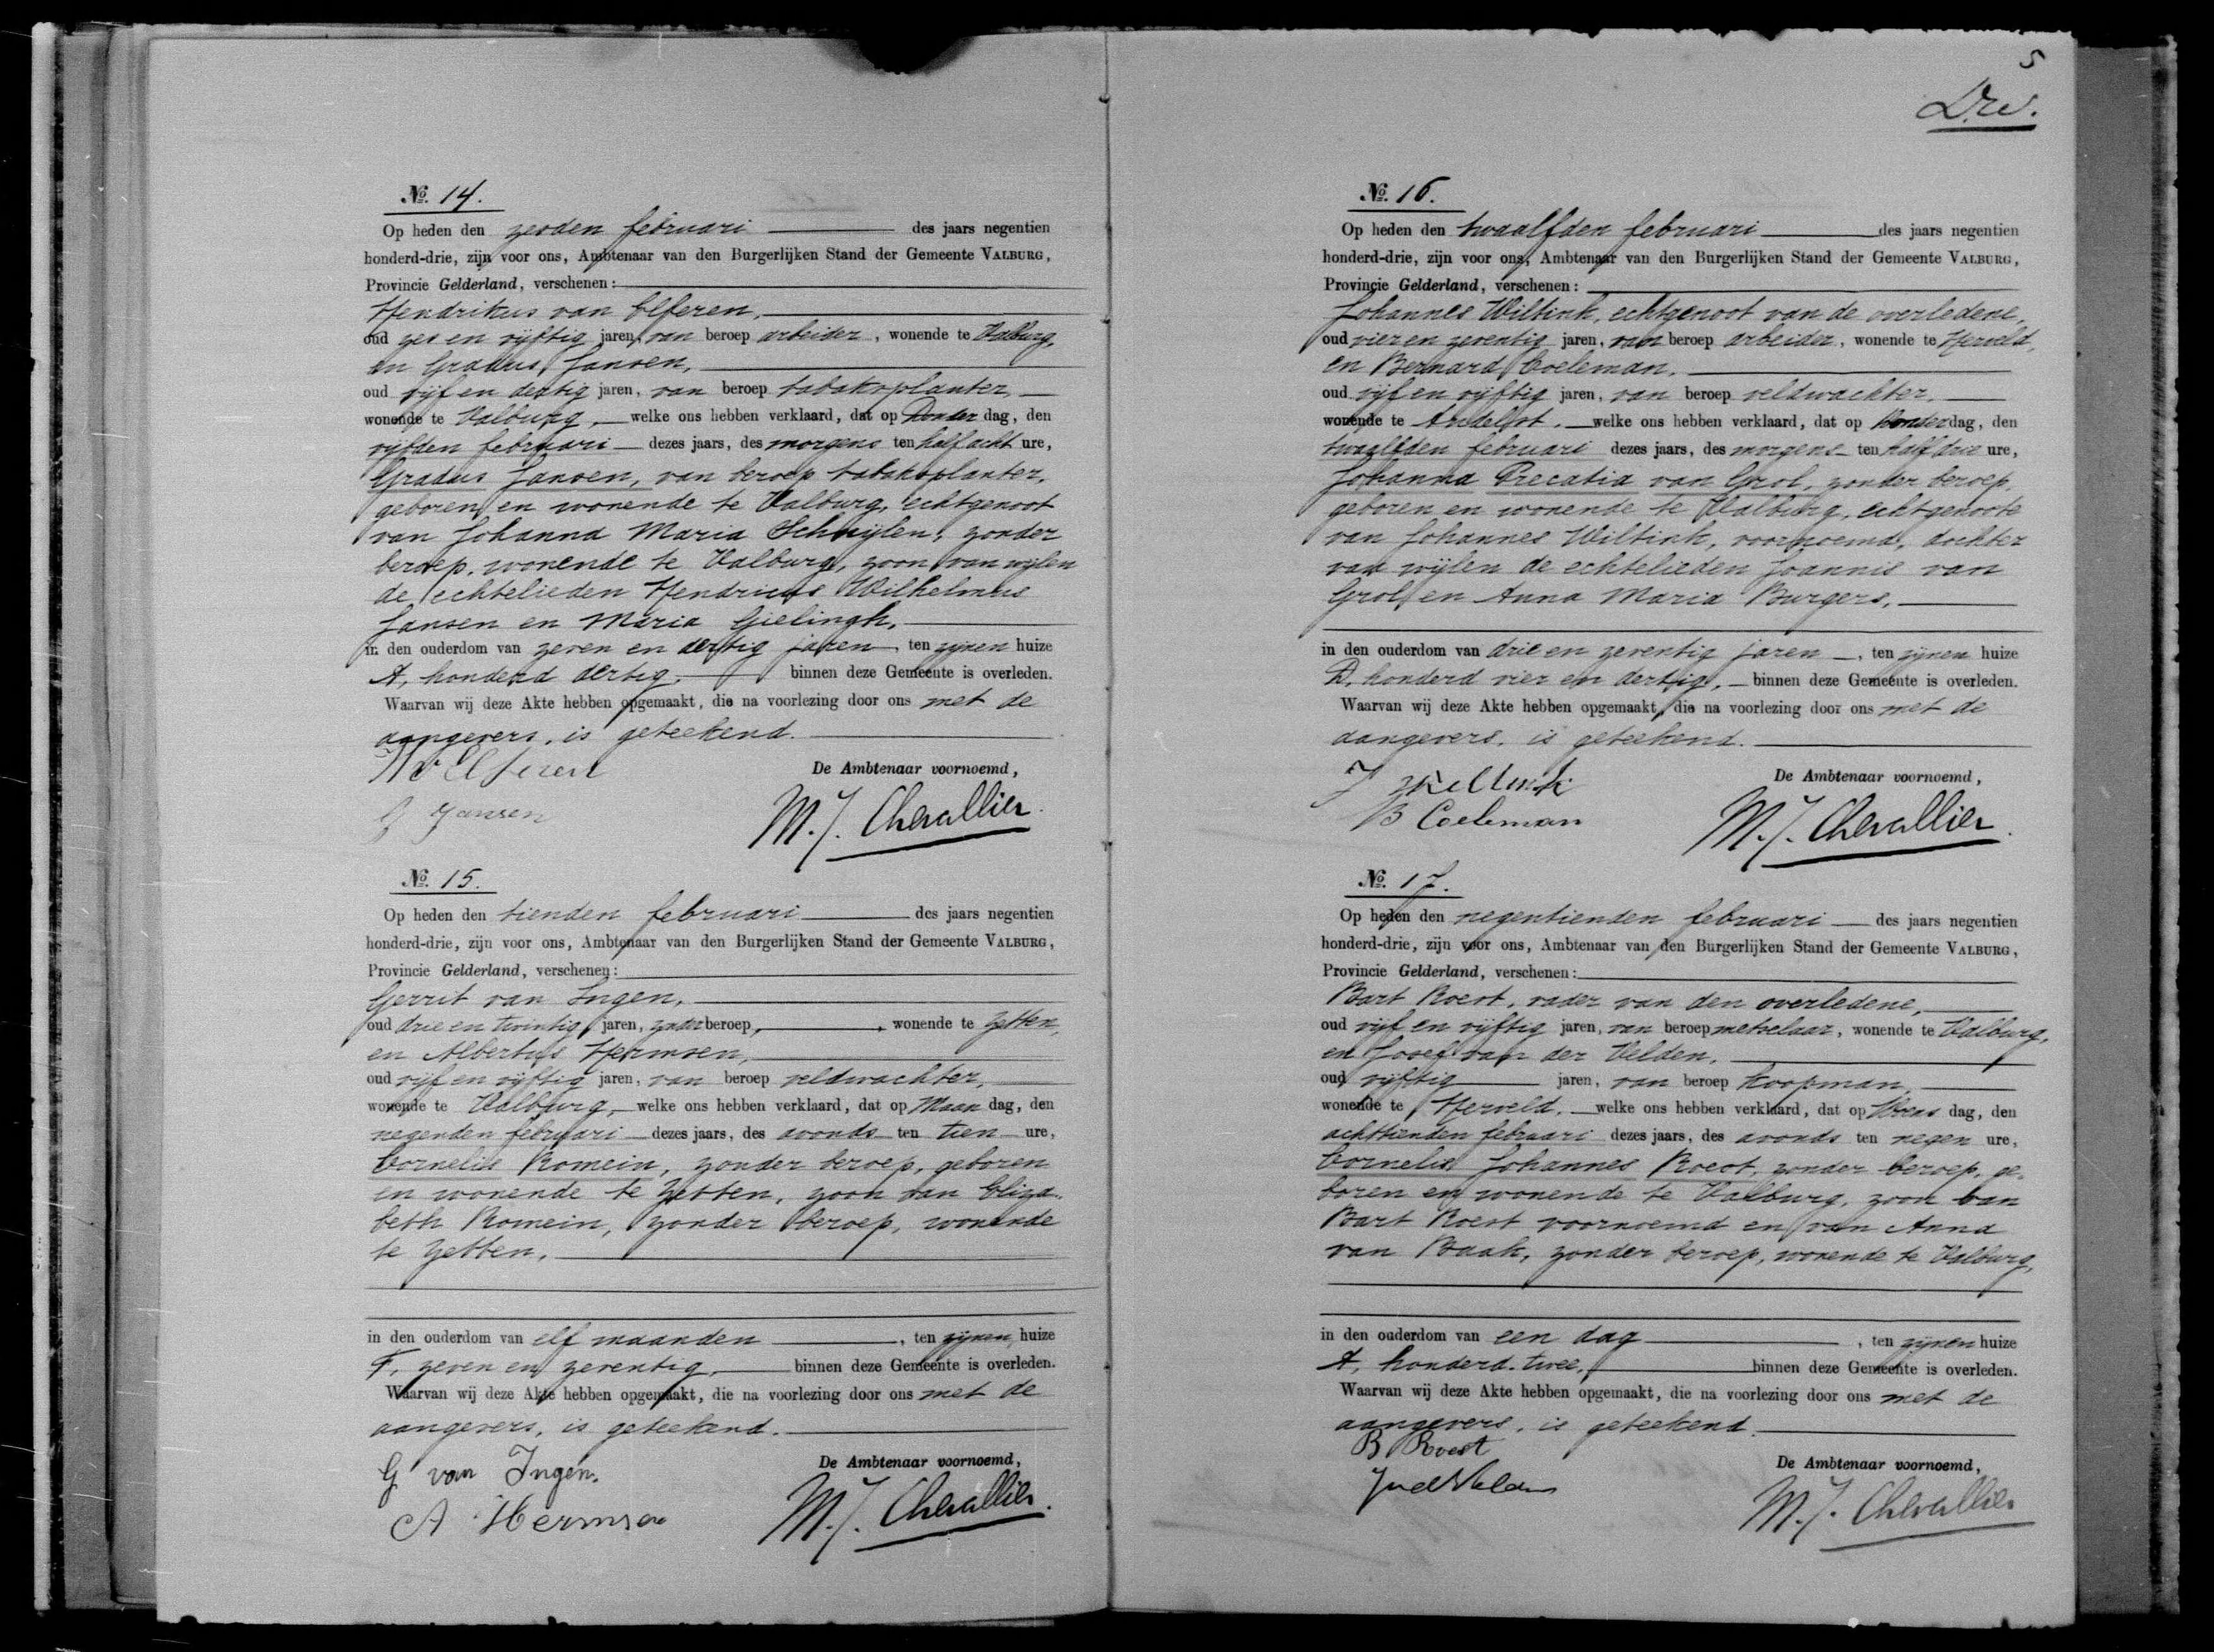 No. 14.
Op heden den zesden februari des jaars negentien
honderd-drie, zijn voor ons, Ambtenaar van den Burgerlijken Stand der Gemeente VALBURG,
Provincie Gelderland, verschenen:
Hendrikus van Elferen,
oud zes en vijftig jaren, van beroep arbeider, wonende te Valburg,
en Gradus Jansen,
oud vijf en dertig jaren, van beroep tabaksplanter,
wonende te Valburg, welke ons hebben verklaard, dat op Donder dag, den
vijfden februari dezes jaars, des morgens ten half acht ure,
Gradus Jansen, van beroep tabaksplanter,
geboren en wonende te Valburg, echtgenoot
van Johanna Maria Schuijlen, zonder
beroep, wonende te Valburg, zoon van wijlen
de echtelieden Hendricus Wilhelmus
Jansen en Maria Gielingh,
in den ouderdom van zeven en dertig jaren, ten zijnen huize
A, honderd dertig, binnen deze Gemeente is overleden.
Waarvan wij deze Akte hebben opgemaakt, die na voorlezing door ons met de
aangevers, is geteekend.
H v Elferen
De Ambtenaar voornoemd,
G Jansen
M. J. Chevallier.
No. 15.
Op heden den tienden februari des jaars negentien
honderd-drie, zijn voor ons, Ambtenaar van den Burgerlijken Stand der Gemeente VALBURG,
Provincie Gelderland, verschenen:
Gerrit van Ingen,
oud drie en twintig jaren, zonder beroep, wonende te Zetten,
en Albertus Hermsen,
oud vijf en vijftig jaren, van beroep veldwachter,
wonende te Valburg, welke ons hebben verklaard, dat op Maan dag, den
negenden februari dezes jaars, des avonds ten tien ure,
Cornelis Romein, zonder beroep, geboren
en wonende te Zetten, zoon van Eliza-
beth Romein, zonder beroep, wonende
te Zetten,
in den ouderdom van elf maanden, ten zijnen huize
F, zeven en zeventig, binnen deze Gemeente is overleden.
Waarvan wij deze Akte hebben opgemaakt, die na voorlezing door ons met de
aangevers, is geteekend.
G van Ingen.
De Ambtenaar voornoemd,
A Hermsen
M. J. Chevallier.
5
No. 16.
Op heden den twaalfden februari des jaars negentien
honderd-drie, zijn voor ons, Ambtenaar van den Burgerlijken Stand der Gemeente VALBURG,
Provincie Gelderland, verschenen:
Johannes Wiltink, echtgenoot van de overledene,
oud vier en zeventig jaren, van beroep arbeider, wonende te Herveld,
en Bernard Coeleman,
oud vijf en vijftig jaren, van beroep veldwachter,
wonende te Andelst, welke ons hebben verklaard, dat op Donder dag, den
twaalfden februari dezes jaars, des morgens ten half drie ure,
Johanna Precatia van Grol, zonder beroep,
geboren en wonende te Valburg, echtgenoote
van Johannes Wiltink, voornoemd, dochter
van wijlen de echtelieden Joannis van
Grol en Anna Maria Burgers,
in den ouderdom van drie en zeventig jaren, ten zijnen huize
D, honderd vier en dertig, binnen deze Gemeente is overleden.
Waarvan wij deze Akte hebben opgemaakt, die na voorlezing door ons met de
aangevers, is geteekend.
De Ambtenaar voornoemd,
B Coeleman
M. J. Chevallier.
No. 17.
Op heden den negentienden februari des jaars negentien
honderd-drie, zijn voor ons, Ambtenaar van den Burgerlijken Stand der Gemeente VALBURG,
Provincie Gelderland, verschenen:
Bart Roest, vader van den overledene,
oud vijf en vijftig jaren, van beroep metselaar, wonende te Valburg,
en Josef van der Velden,
oud vijftig jaren, van beroep koopman,
wonende te Herveld, welke ons hebben verklaard, dat op Woens dag, den
achttienden februari dezes jaars, des avonds ten negen ure,
Cornelis Johannes Roest, zonder beroep, ge-
boren en wonende te Valburg, zoon van
Bart Roest voornoemd en van Anna
van Baak, zonder beroep, wonende te Valburg,
in den ouderdom van een dag, ten zijnen huize
A, honderd twee, binnen deze Gemeente is overleden.
Waarvan wij deze Akte hebben opgemaakt, die na voorlezing door ons met de
aangevers, is geteekend.
B Roest
De Ambtenaar voornoemd,
M. J. Chevallier